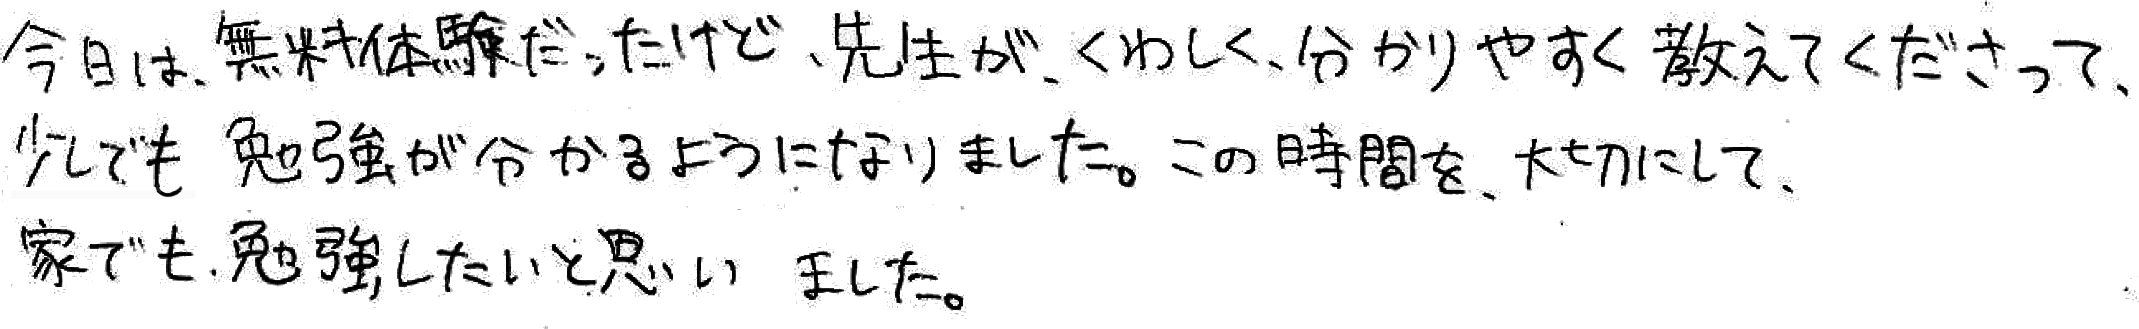 今日は、無料体験だったけど、先生が、くわしく、分かりやすく教えてくださって、
少しでも勉強が分かるようになりました。この時間を、大切にして、
家でも、勉強したいと思いました。